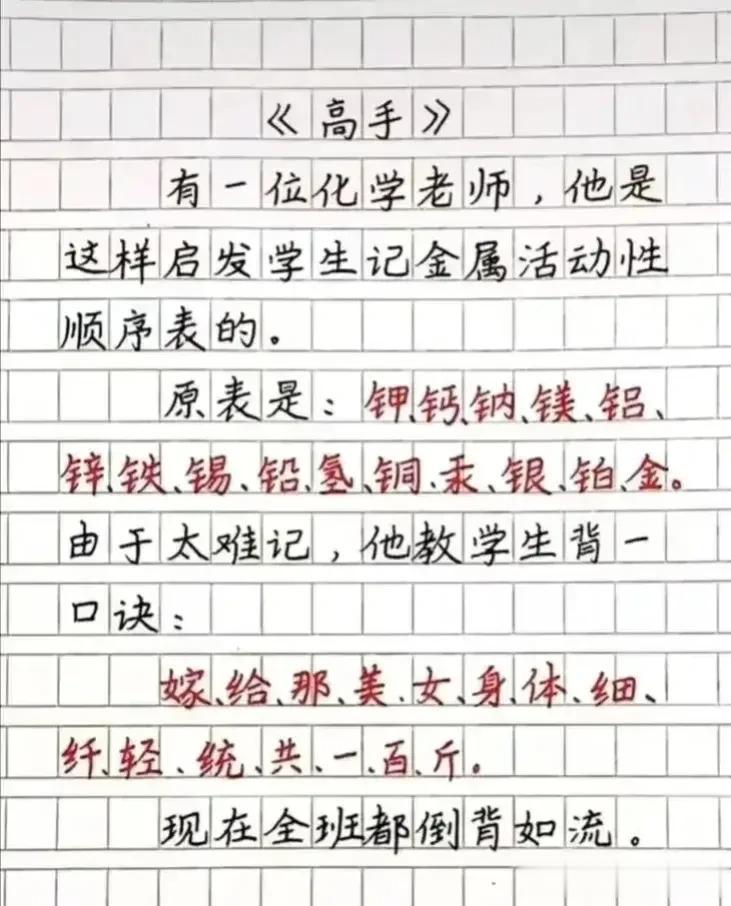 《高手》
有一位化学老师，他是
这样启发学生记金属活动性
顺序表的。
原表是：钾、钙、钠、镁、铝、
锌、铁、锡、铅、氢、铜、汞、银、铂、金。
由于太难记，他教学生背一
口诀：
嫁、给、那、美、女、身、体、细、
纤、轻、统、共、一、百、斤。
现在全班都倒背如流。